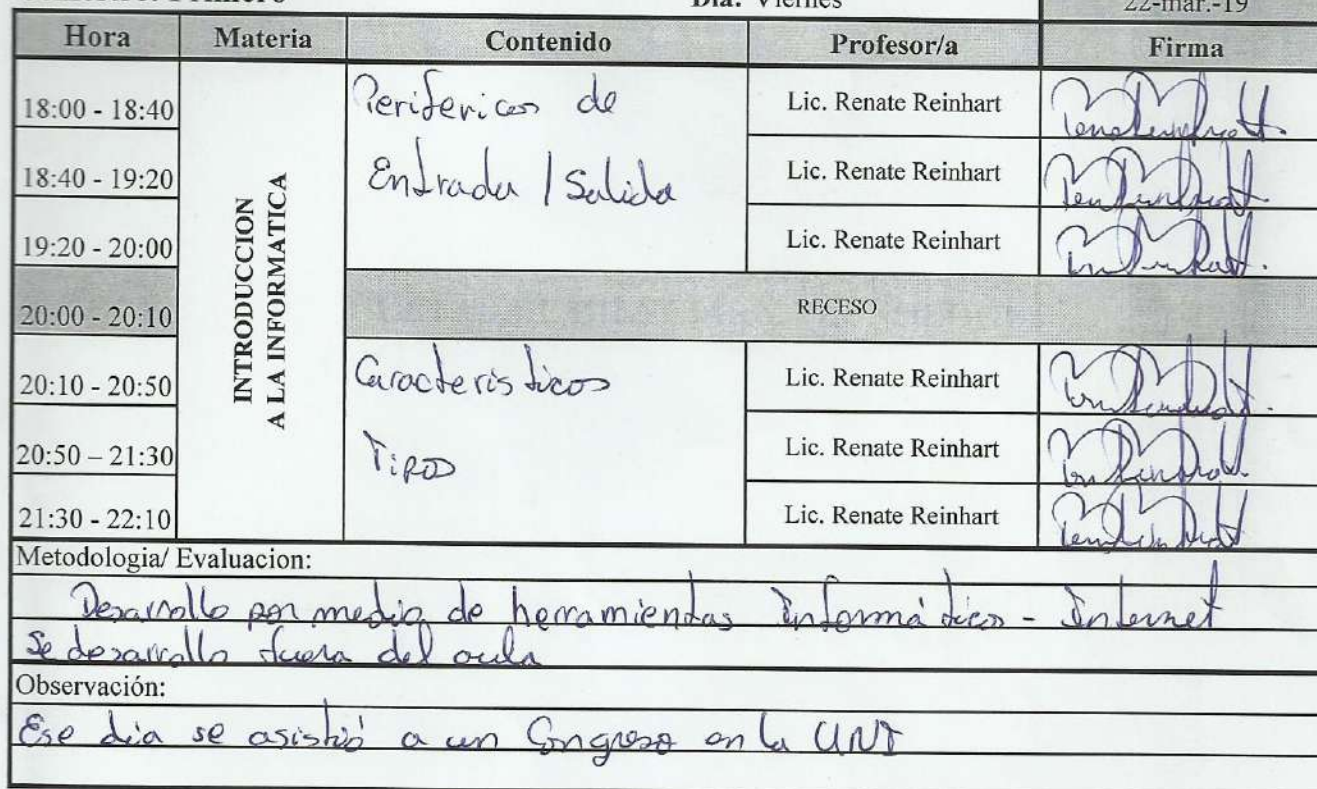 Día: Viernes
22-mar.-19
Hora Materia Contenido Profesor/a Firma
18:00 - 18:40 Perifericos de Lic. Renate Reinhart
18:40 - 19:20 Entrada / Salida Lic. Renate Reinhart
19:20 - 20:00 Lic. Renate Reinhart
INTRODUCCION
A LA INFORMATICA
20:00 - 20:10 RECESO
20:10 - 20:50 Caracteristicos Lic. Renate Reinhart
20:50 – 21:30 Tipos Lic. Renate Reinhart
21:30 - 22:10 Lic. Renate Reinhart
Metodologia/ Evaluacion:
Desarrollo por medio de herramientas Informáticas - Internet
Se desarrollo fuera del aula
Observación:
Ese dia se asistió a un Congreso en la